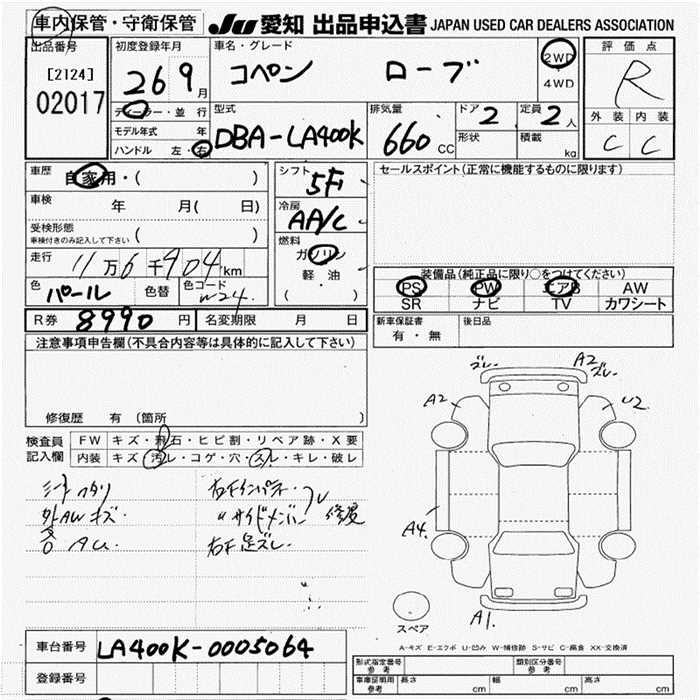 車内保管・守衛保管 JU 愛知 出品申込書 JAPAN USED CAR DEALERS ASSOCIATION
出品番号 初度登録年月 車名・グレード 評価点
[2124] 26 9月 コペン ローブ 2WD・4WD R
02017 ディーラー・並行 型式 排気量 ドア 定員 外装 内装
モデル年式 年 DBA-LA400K 660CC 2 2人 C C
ハンドル 左・右 形状 積載 kg
車歴 自家用・( ) シフト 5F セールスポイント(正常に機能するものに限ります)
車検 年 月( 日) 冷房 AA/C
受検形態 ( ) 燃料 ガソリン
車検付きのみ記入して下さい
走行 11万6千904km 軽・油 装備品(純正品に限り○をつけてください)
色 パール 色替 色コード W24. ( ) PS PW エアB AW
SR ナビ TV カワシート
R券 8990円 名変期限 月 日 新車保証書 後日品
有・無
注意事項申告欄(不具合内容等は具体的に記入して下さい)
ズレ A2 ズレ
A2 U2
修復歴 有 (箇所 )
検査員 FW キズ・飛石・ヒビ割・リペア跡・X要
記入欄 内装 キズ・汚レ・コゲ・穴・スレ・キレ・破レ
シートヘタリ 右Fインパネ
外AWキズ 〃サイドメンバー 修復
各AU. 右F足ズレ
A4
A1.
スペア
A-キズ E-エクボ U-凹み W-補修跡 S-サビ C-腐食 XX-交換済
車台番号 LA400K-0005064
登録番号 形式指定番号 参考 類別区分番号 参考
車庫証明用 参考 長さ cm 幅 cm 高さ cm